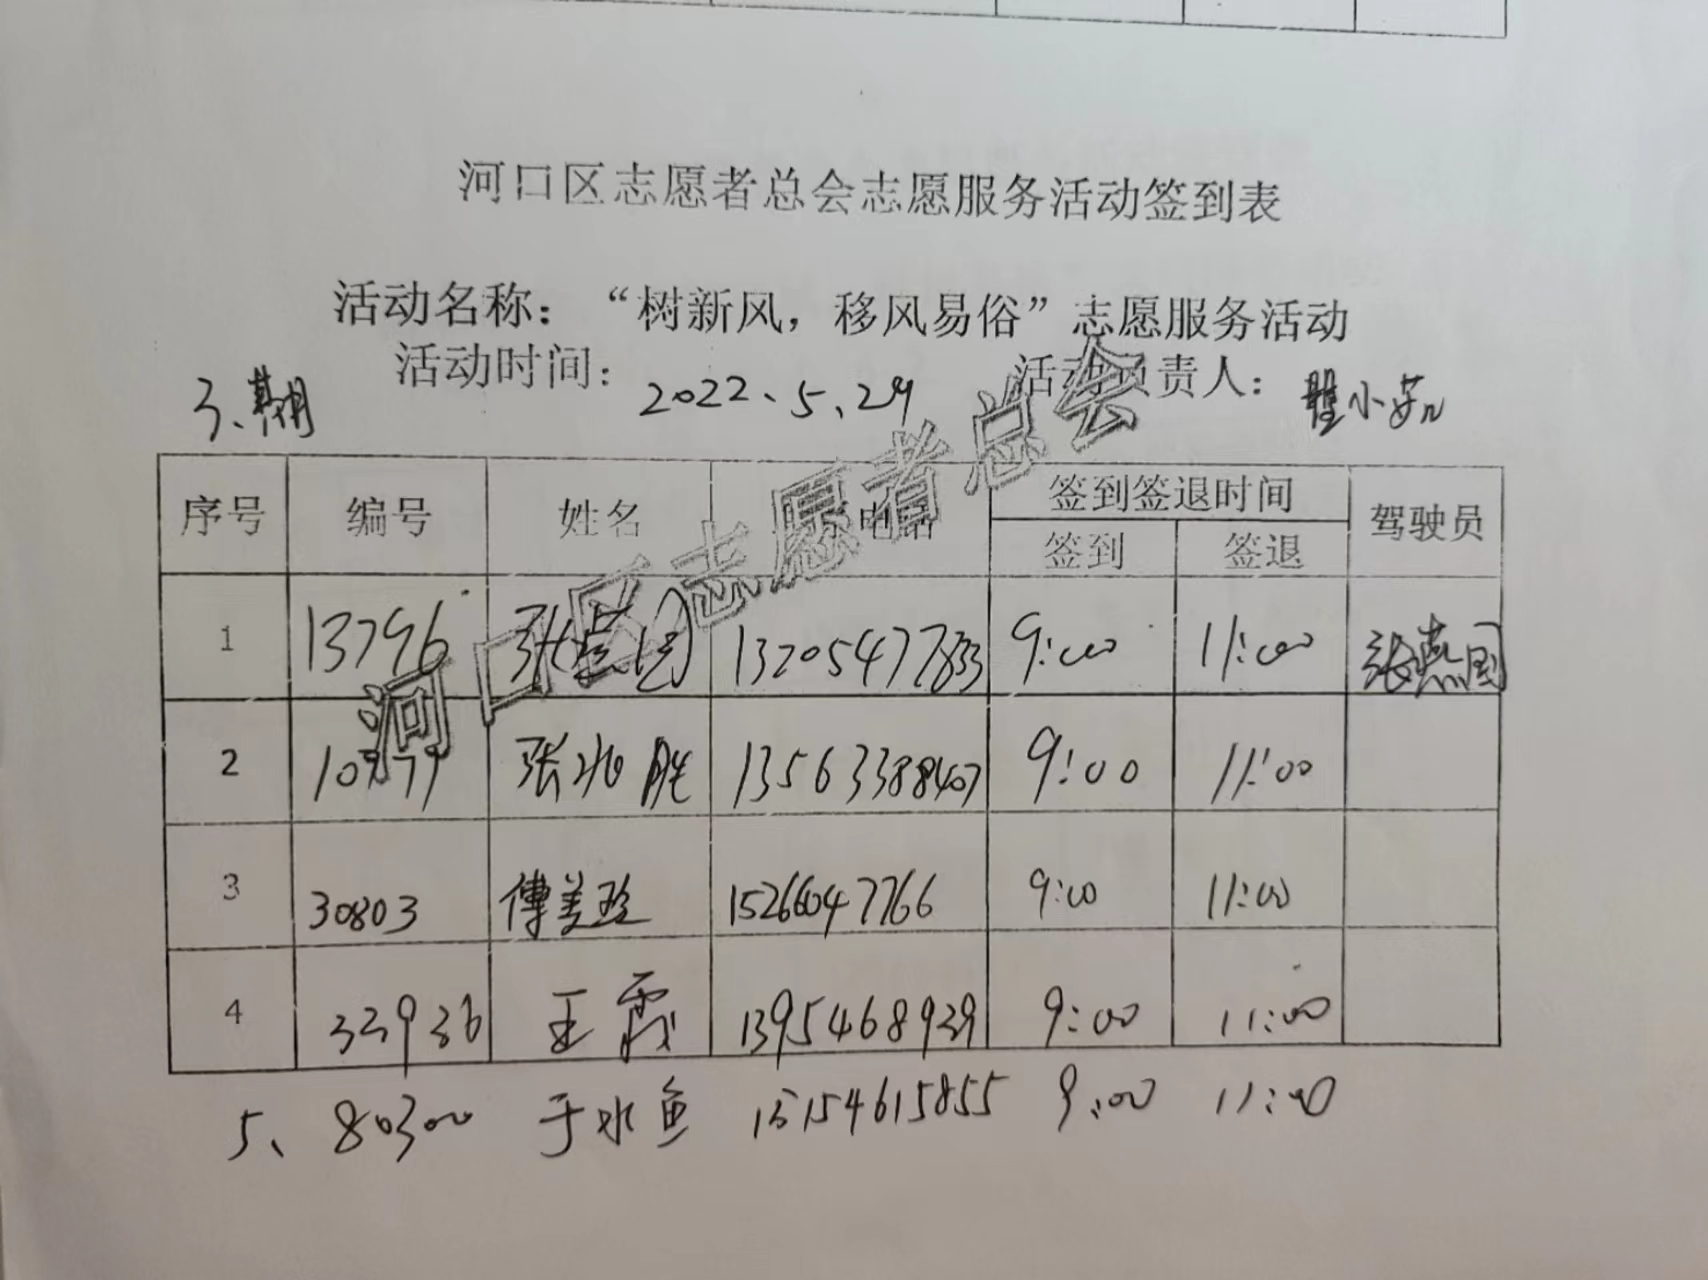 河口区志愿者总会志愿服务活动签到表
活动名称：“树新风，移风易俗”志愿服务活动
活动时间： 2022.5.29 活动负责人： 小茹
3、期
序号 编号 姓名 电话 签到签退时间 驾驶员
签到 签退
1 13796 张燕国 13205477833 9:00 11:00 张燕国
2 张兆胜 13563388407 9:00 11:00
3 30803 傅美玲 15266047766 9:00 11:00
4 33936 王霞 1395468939 9:00 11:00
5、 80300 于水鱼 15154615855 9:00 11:00
河口区志愿者总会